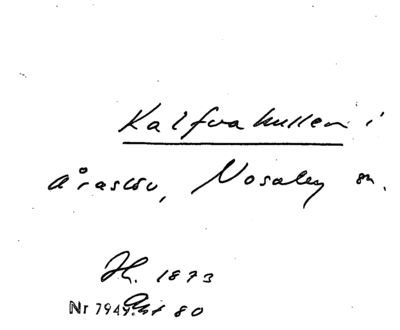 Kalfvakullen i
Åraslöv, Nosaby sn.
H. 1873
Nr 7949. Akt 80